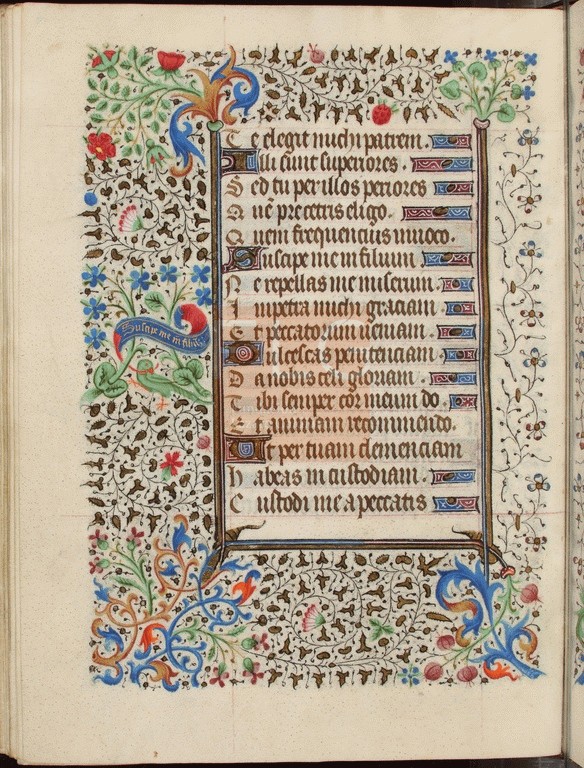 Te elegit michi patrem.
Illi sunt superiores.
Sed tu per illos periores
Quē pre cetris eligo.
Quem frequencius invoco.
Suscipe me in filium
Ne repellas me miserum.
Inpetra michi graciam.
Et peccatorum veniam.
Dulcescas penitenciam.
Da nobis celi gloriam.
Tibi semper cor meum do.
Et animam recommendo.
Ut per tuam clemenciam
Habeas in custodiam.
Custodi me a peccatis
Suscipe me in filiū